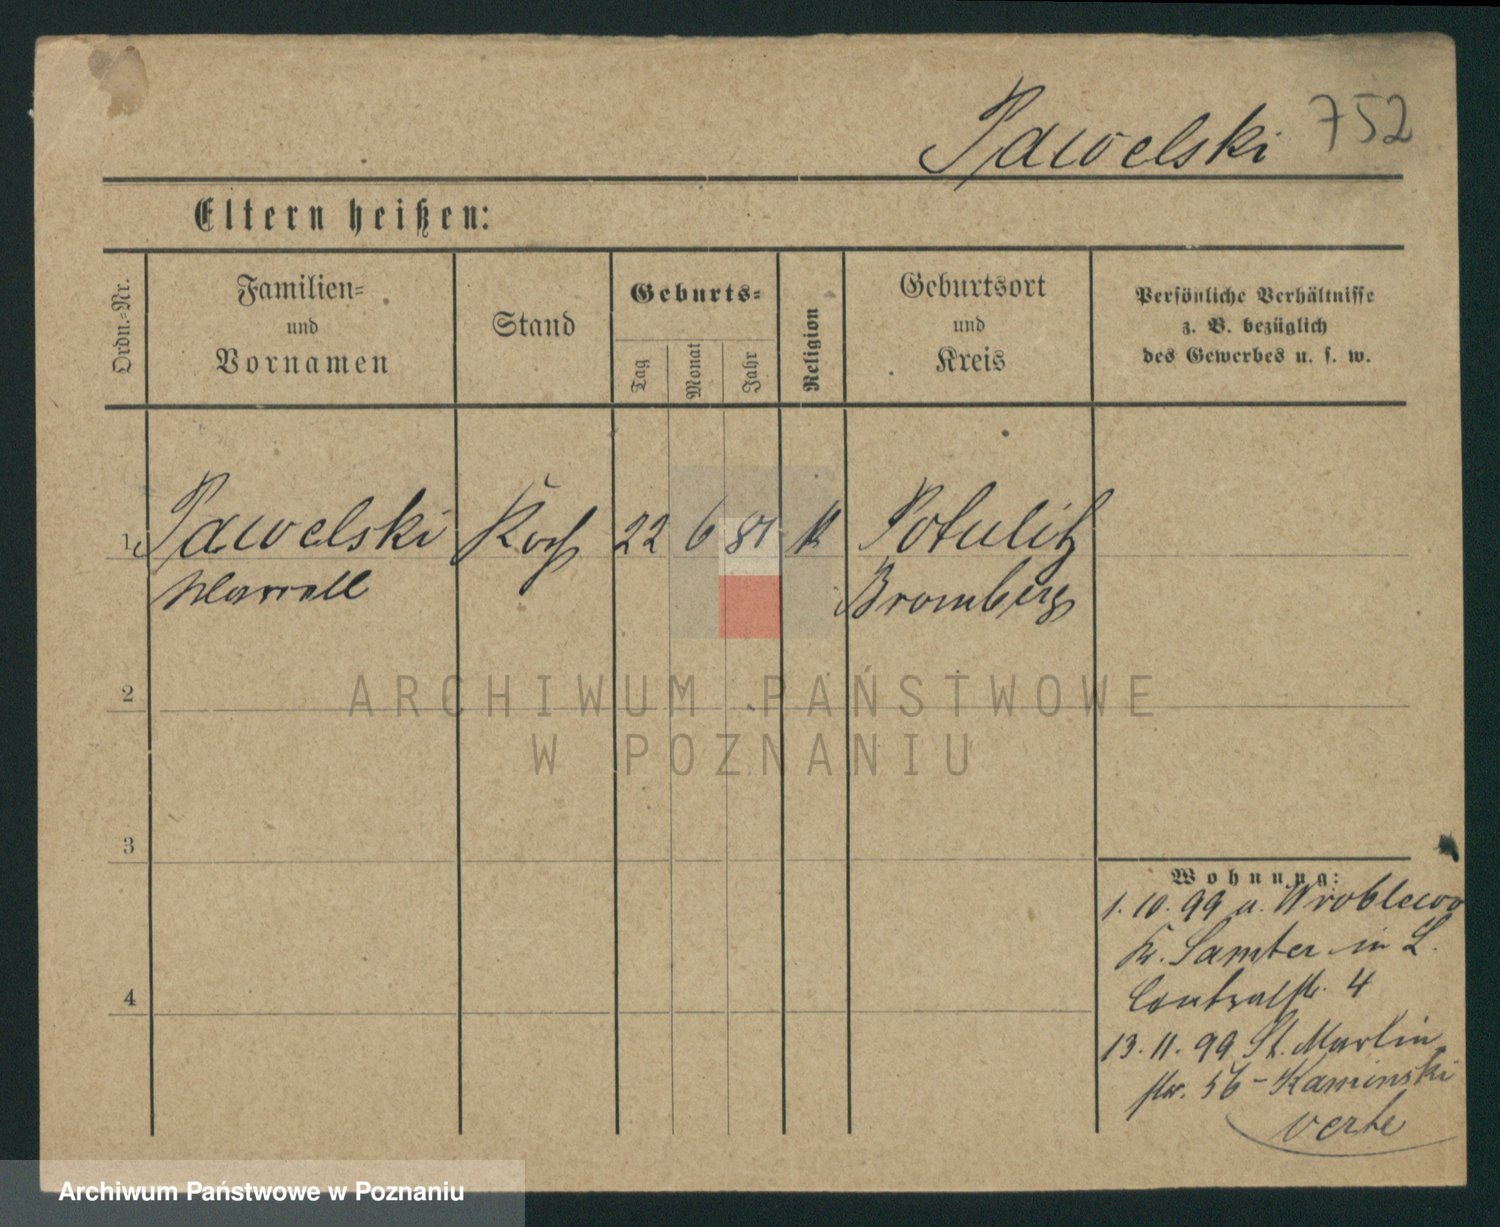 Pawelski 752
Eltern heißen:
Ordn.=Nr.
Familien=
und
Vornamen
Stand
Geburts=
Tag
Monat
Jahr
Religion
Geburtsort
und
Kreis
Persönliche Verhältnisse
z. B. bezüglich
des Gewerbes u. s. w.
1 Pawelski Koch 22 6 81 k Potulitz
Bromberg
2
3
4
Wohnung:
1. 10. 99 a. Wroblewo
Kr. Samter in L.
13. 11. 99 St. Martin
str. 56 - Kaminski
verte
ARCHIWUM PAŃSTWOWE
W POZNANIU
Archiwum Państwowe w Poznaniu